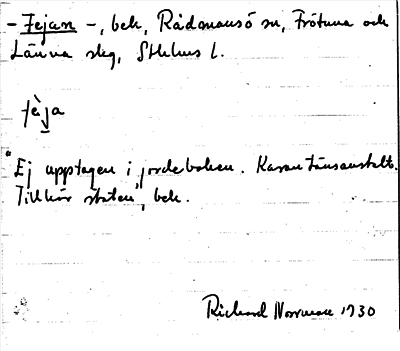 - Fejan -, beh, Rådmansö sn, Frötuna och
Länna skg, Sthlms l.
fèja
Ej upptagen i jordeboken. Karantänsanstalt.
Tillhör staten, beh.
Richard Norrman 1930